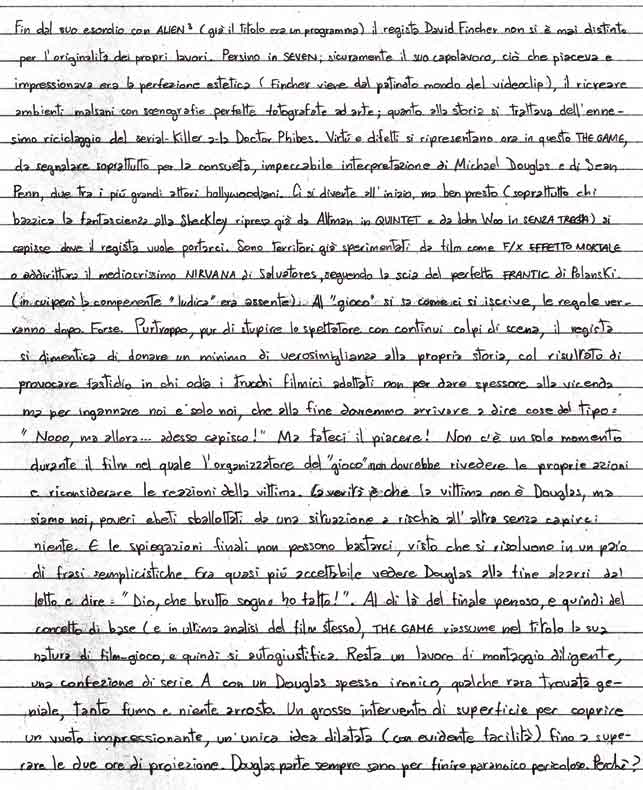 Fin dal suo esordio con ALIEN³ (già il titolo era un programma) il regista David Fincher non si è mai distinto
per l'originalità dei propri lavori. Persino in SEVEN, sicuramente il suo capolavoro, ciò che piaceva e
impressionava era la perfezione estetica (Fincher viene dal patinato mondo del videoclip), il ricreare
ambienti malsani con scenografie perfette fotografate ad arte; quanto alla storia si trattava dell'enne-
simo riciclaggio del serial-killer a-la Doctor Phibes. Virtù e difetti si ripresentano ora in questo THE GAME,
da segnalare soprattutto per la consueta, impeccabile interpretazione di Michael Douglas e di Sean
Penn, due tra i più grandi attori hollywoodiani. Ci si diverte all'inizio, ma ben presto (soprattutto chi
bazzica la fantascienza alla Sheckley ripresa già da Altman in QUINTET e da John Woo in SENZA TREGUA) si
capisce dove il regista vuole portarci. Sono territori già sperimentati da film come F/X EFFETTO MORTALE
o addirittura il mediocrissimo NIRVANA di Salvatores, seguendo la scia del perfetto FRANTIC di Polanski.
(in cui però la componente "ludica" era assente). Al "gioco" si sa come ci si iscrive, le regole ver-
ranno dopo. Forse. Purtroppo, pur di stupire lo spettatore con continui colpi di scena, il regista
si dimentica di donare un minimo di verosimiglianza alla propria storia, col risultato di
provocare fastidio in chi odia i trucchi filmici adottati non per dare spessore alla vicenda
ma per ingannare noi e solo noi, che alla fine dovremmo arrivare a dire cose del tipo:
"Nooo, ma allora... adesso capisco!" Ma fateci il piacere! Non c'è un solo momento
durante il film nel quale l'organizzatore del "gioco" non dovrebbe rivedere le proprie azioni
e riconsiderare le reazioni della vittima. La verità è che la vittima non è Douglas, ma
siamo noi, poveri ebeti sballottati da una situazione a rischio all'altra senza capirci
niente. E le spiegazioni finali non possono bastarci, visto che si risolvono in un paio
di frasi semplicistiche. Era quasi più accettabile vedere Douglas alla fine alzarsi dal
letto e dire: "Dio, che brutto sogno ho fatto!". Al di là del finale penoso, e quindi del
concetto di base (e in ultima analisi del film stesso), THE GAME riassume nel titolo la sua
natura di film-gioco, e quindi si autogiustifica. Resta un lavoro di montaggio diligente,
una confezione di serie A con un Douglas spesso ironico, qualche rara trovata ge-
niale, tanto fumo e niente arrosto. Un grosso intervento di superficie per coprire
un vuoto impressionante, un'unica idea dilatata (con evidente facilità) fino a supe-
rare le due ore di proiezione. Douglas parte sempre sano per finire paranoico pericoloso. Perchè?